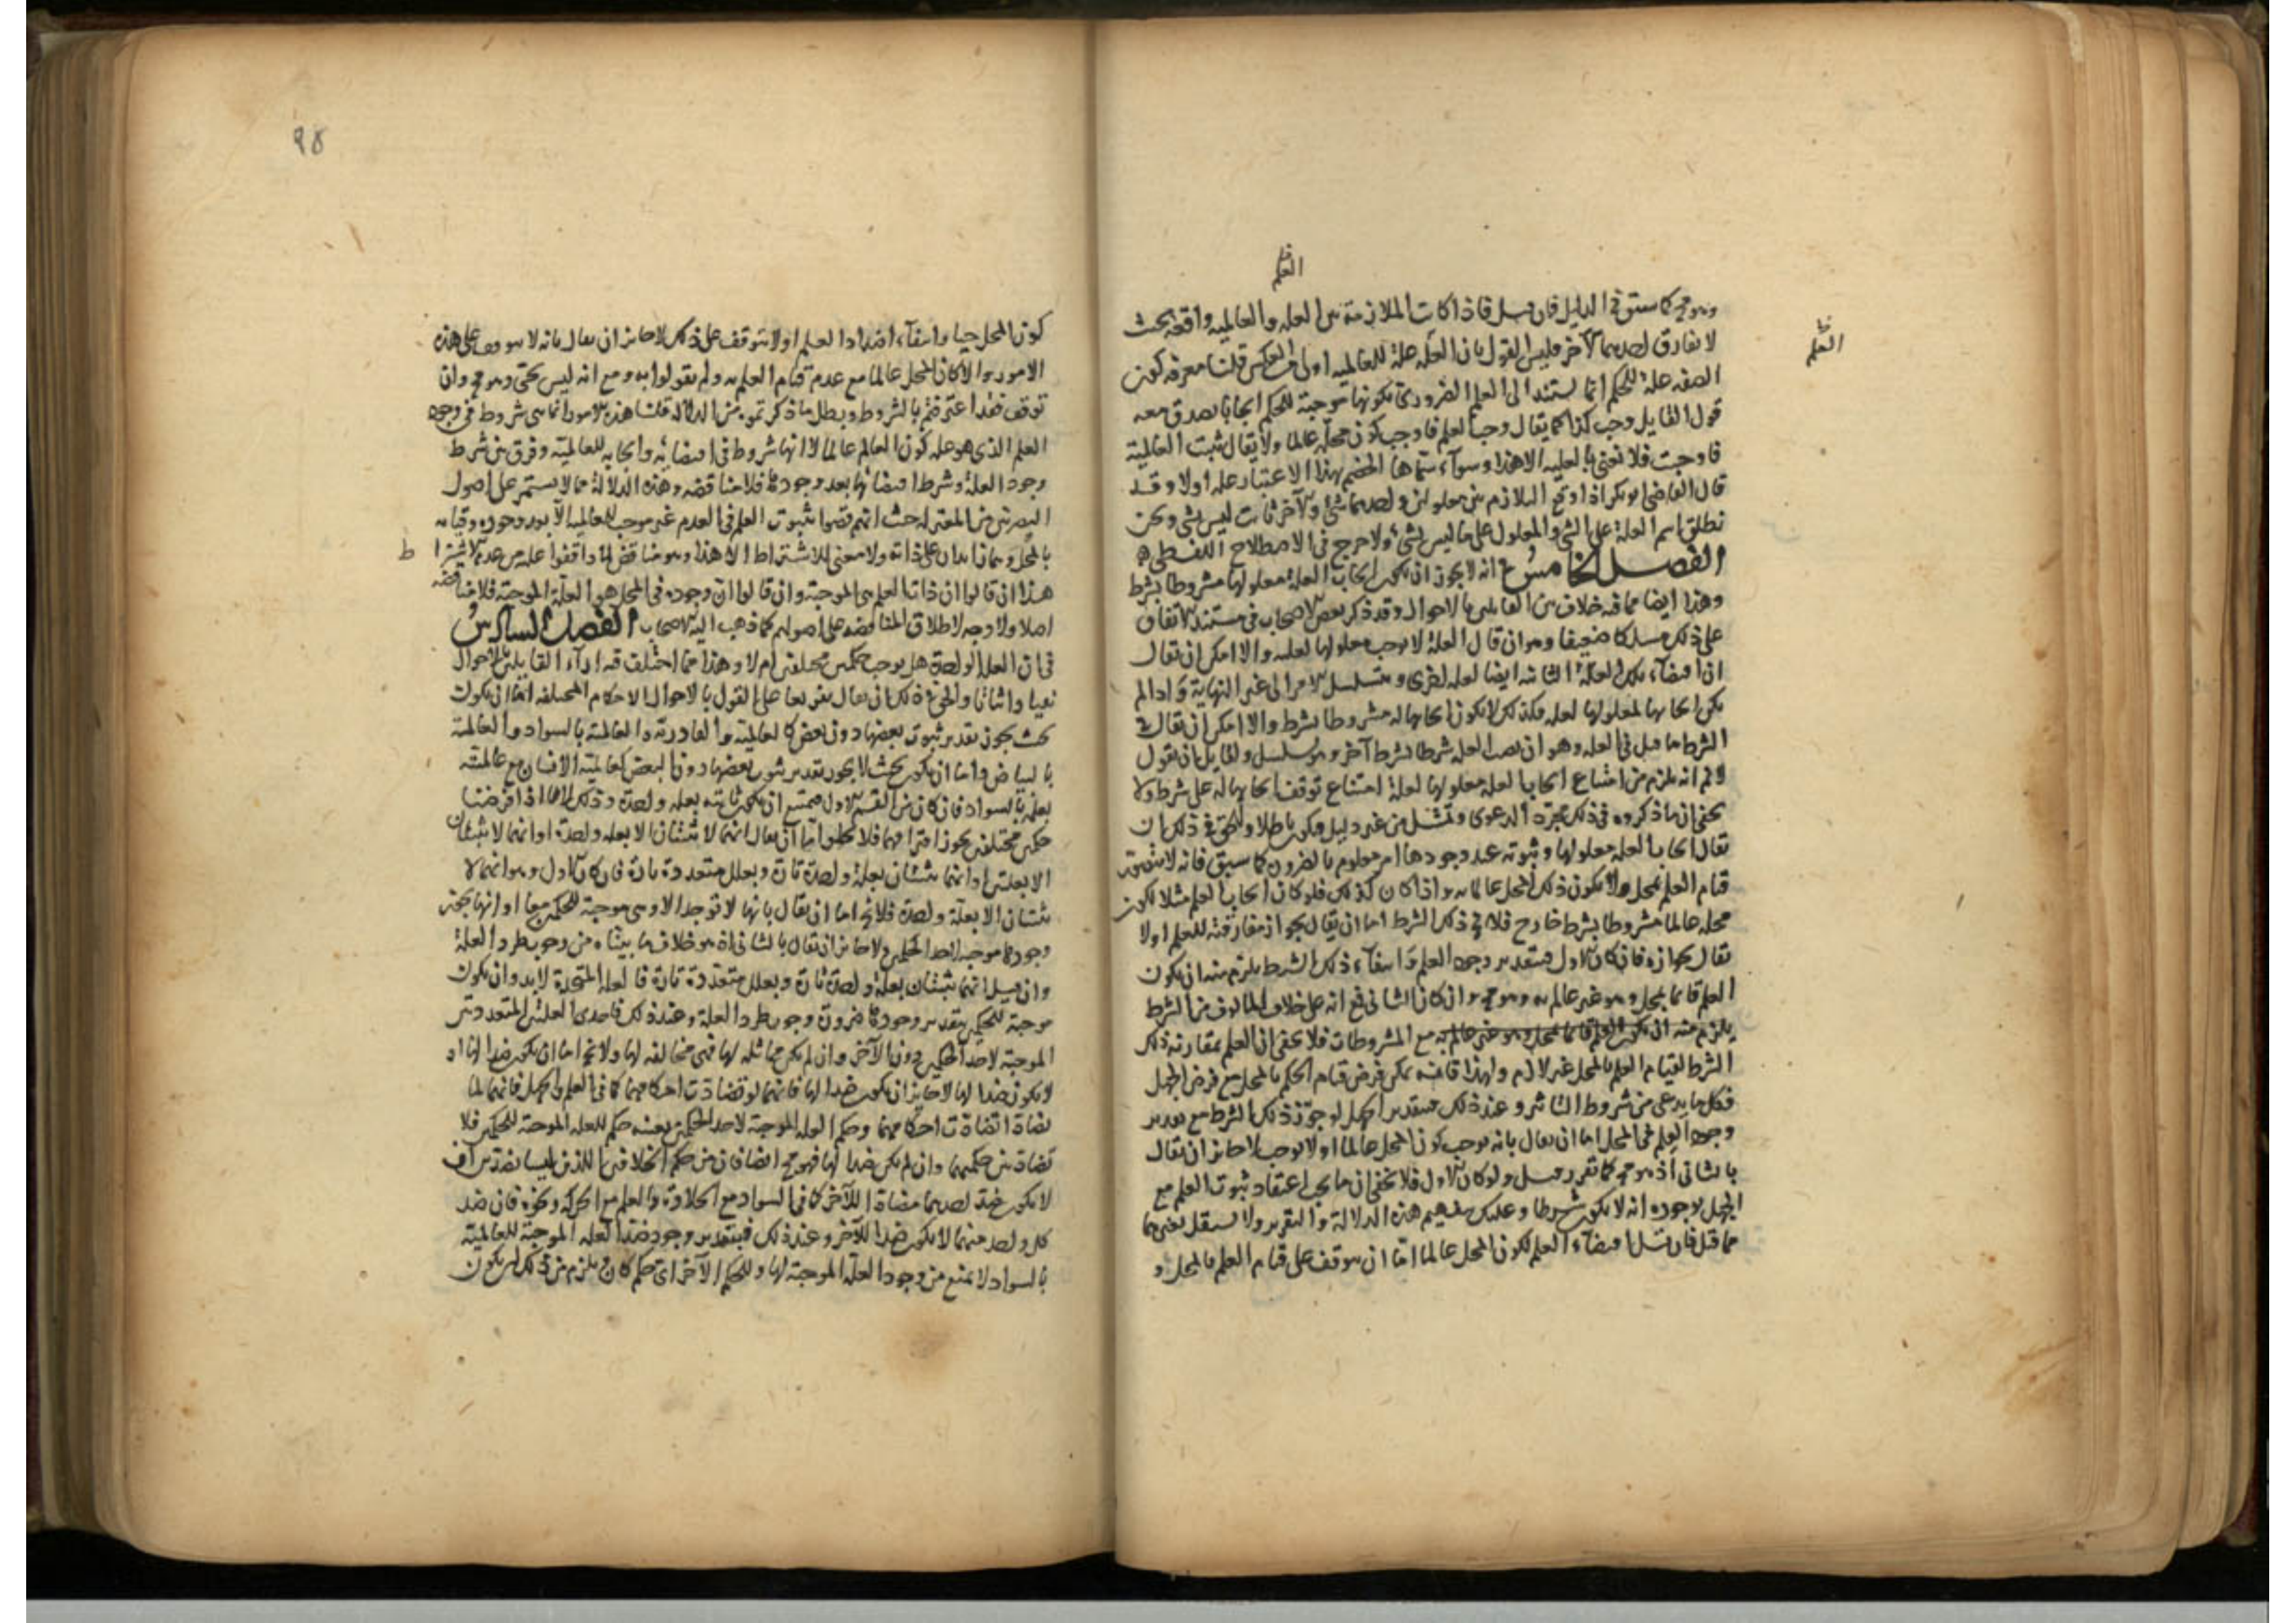 العلم
وهو مح كما سبق في الدليل فان قيل فاذا كانت الملازمة بين العله والعالميه واقعة بحيث
العلم
لا يفارق احدهما الآخر فليس القول بان العلم علة للعالميه اولى من العكس قلنا معرفه كون
الصفه علة للحكم انما يستند الى العلم الضرورى بكونها موجبة للحكم ايجابا يصدق معه
قول القايل وجب كذا كما يقال وجب العلم فاوجب كون محله عالما ولا يقال ثبت العالمية
فاوجبت فلا نعنى بالعليه الا هذا وسواء سماها الخصم بهذا الاعتبار علة اولا وقد
قال القاضى ابو بكر اذا وقع التلازم بين معلولين واحدهما شئ والآخر ثابت ليس بشئ ونحن
نطلق اسم العلة على الشئ والمعلول على ما ليس بشئ ولا حرج في الاصطلاح اللفظى
الفصل الخامس في انه لا يجوز ان يكون ايجاب العلة معلولها مشروطا بشرط
وهذا ايضا مما فيه خلاف بين القايلين بالاحوال وقد ذكر بعض الاصحاب في مستند الاتفاق
على ذلك مسلكا ضعيفا وهو ان قال العلة لا يوجب معلولها لعله والا امكن ان يقال
ان اقتضاء تلك العلة الثانيه ايضا لعله اخرى ويتسلسل الامر الى غير النهاية واذا لم
يكن ايجابها لمعلولها لعله فكذلك لا يكون ايجابها له مشروطا بشرط والا امكن ان يقال في
الشرط ما قيل في العله وهو ان يصير العله شرطا بشرط آخر ويتسلسل ولقايل ان يقول
لا نم انه يلزم من امتناع ايجاب العله معلولها لعلة امتناع توقف ايجابها له على شرط ولا
يخفى ان ما ذكروه في ذلك مجرد الدعوى وتمثيل من غير دليل فيكون باطلا والحق في ذلك ان
يقال ايجاب العله معلولها وثبوته عند وجودها امر معلوم بالضرورة كما سبق فانه لا يتصور
قيام العلم بمحل ولا يكون ذلك المحل عالما به واذا كان كذلك فلو كان ايجاب العلم مثلا يكون
محله عالما مشروطا بشرط خارج فلا يخ ذلك الشرط اما ان يقال بجواز مفارقته للعلم اولا
يقال بجوازه فان كان الاول فبتقدير وجود العلم وانتفاء ذلك الشرط يلزم منه ان يكون
العلم قائما بمحل وهو غير عالم به وهو مح وان كان الثانى فمع انه على خلاف المالوف من الشرط
يلزم منه ان يكون العلم قائما بمحل وهو غير عالم به مع المشروطات فلا يخفى ان العلم بمقارنة ذلك
الشرط لقيام العلم بالمحل غير لازم ولهذا فانه يمكن فرض قيام الحكم بالمحل مع فرض الجهل
فكل ما يدعى من شروط التاثير وعند ذلك فبتقدير الجهل لو جوز ذلك الشرط مع تقدير
وجود العلم في المحل اما ان يقال بانه يوجب كون المحل عالما اولا يوجب لا جائز ان يقال
بالثانى اذ هو مح كما تقرر قبل ولو كان الاول فلا يخفى ان ما يجب اعتقاد ثبوت العلم مع
الجهل بوجوده انه لا يكون شرطا وعليك بتفهيم هذه الدلالة والتقرير ولا يستقل بغيرها
مما قيل فان قيل اقتضاء العلم لكون المحل عالما اما ان يتوقف على قيام العلم بالمحل و
٩٥
كون المحل حيا وانتفاء اضداد العلم اولا يتوقف على ذلك لا جائز ان يقال بانه لا يتوقف على هذه
الامور والا لكان المحل عالما مع عدم قيام العلم به ولم يقولوا به ومع انه ليس بحى وهو مح وان
توقف فقد اعترفتم بالشروط وبطل ما ذكرتموه من الدلالة قلنا هذه الامور انما هى شروط في وجود
العلم الذى هو علة كون العالم عالما لا انها شروط في اقتضائه وايجابه للعالمية وفرق بين شرط
وجود العلة وشرط اقتضائها بعد وجودها فلا مناقضه وهذه الدلالة مما لا يستمر على اصول
البصريين من المعتزله حيث انهم قضوا بثبوت العلم في العدم غير موجب للعالميه الا بعد وجوده وقيامه
بالمحل وهما زايدان على ذاته ولا معنى للاشتراط الا هذا وهو مناقض لما وافقوا عليه من عدم الاشتراط
هذا ان قالوا ان ذات العلم هى الموجبة وان قالوا ان وجوده في المحل هو العلة الموجبة فلا مناقضه
اصلا ولا وجه لاطلاق المناقضه على اصولهم كما ذهب اليه الاصحاب الفصل السادس
في ان العلة الواحدة هل يوجب حكمين مختلفين ام لا وهذا مما اختلفت فيه اراء القايلين بالاحوال
نفيا واثباتا والحق في ذلك ان يقال تفريعا على القول بالاحوال الاحكام المختلفه اما ان يكون
بحيث يجوز تقدير ثبوت بعضها دون بعض كالعالمية والقادرية والعالمية بالسواد والعالمية
بالبياض واما ان يكون بحيث لا يجوز تقدير ثبوت بعضها دون البعض كعالمية الانسان مع عالميته
بعلمه بالسواد فان كان من القسم الاول فممتنع ان يكون ثابته بعله واحدة وذلك لانا اذا فرضنا
حكمين مختلفين يجوز افتراقهما فلا يخلوا اما ان يقال انهما لا يثبتان الا بعله واحدة او انهما لا يثبتان
الا بعلتين او انهما يثبتان بعلة واحدة تارة وبعلل متعددة تارة فان كان الاول وهو انهما لا
يثبتان الا بعلة واحدة فلا يخ اما ان يقال بانها لا توجد الا وهى موجبة للحكمين معا او انها يجوز
وجودها موجبه لاحد الحكمين ولا جائز ان يقال بالثانى اذ هو خلاف ما بيناه من وجوب طرد العلة
وان قيل انهما يثبتان بعلة واحدة تارة وبعلل متعددة تارة فالعله المتحدة لا بد وان يكون
موجبة للحكمين بتقدير وجودها ضرورة وجوب طرد العلة وعند ذلك فاحدى العلتين المتعددتين
الموجبة لاحد الحكمين دون الآخر وان لم يكن مماثله لها فهى مخالفه لها ولا يخ اما ان يكون ضدا لها او
لا يكون ضدا لها لا جائز ان يكون ضدا لها فانهما لو تضادت احكامهما كما في العلم والجهل فانهما لما
تضادا تضادت احكامهما وحكم العله الموجبة لاحد الحكمين بعينه حكم للعله الموجبة للحكمين فلا
تضاد بين حكميهما وان لم يكن ضدا لها فهو مح ايضا فان من حكم الخلافين اللذين ليسا بضدين ان
لا يكون ضد احدهما مضادا للآخر كما في السواد مع الحلاوة والعلم مع الحركه ونحوه فان ضد
كل واحد منهما لا يكون ضدا للآخر وعند ذلك فبتقدير وجود ضد العله الموجبة للعالمية
بالسواد لا يمنع من وجود العلة الموجبة لها وللحكم الآخر اى حكم كان ويلزم من ذلك ان يكون
ط